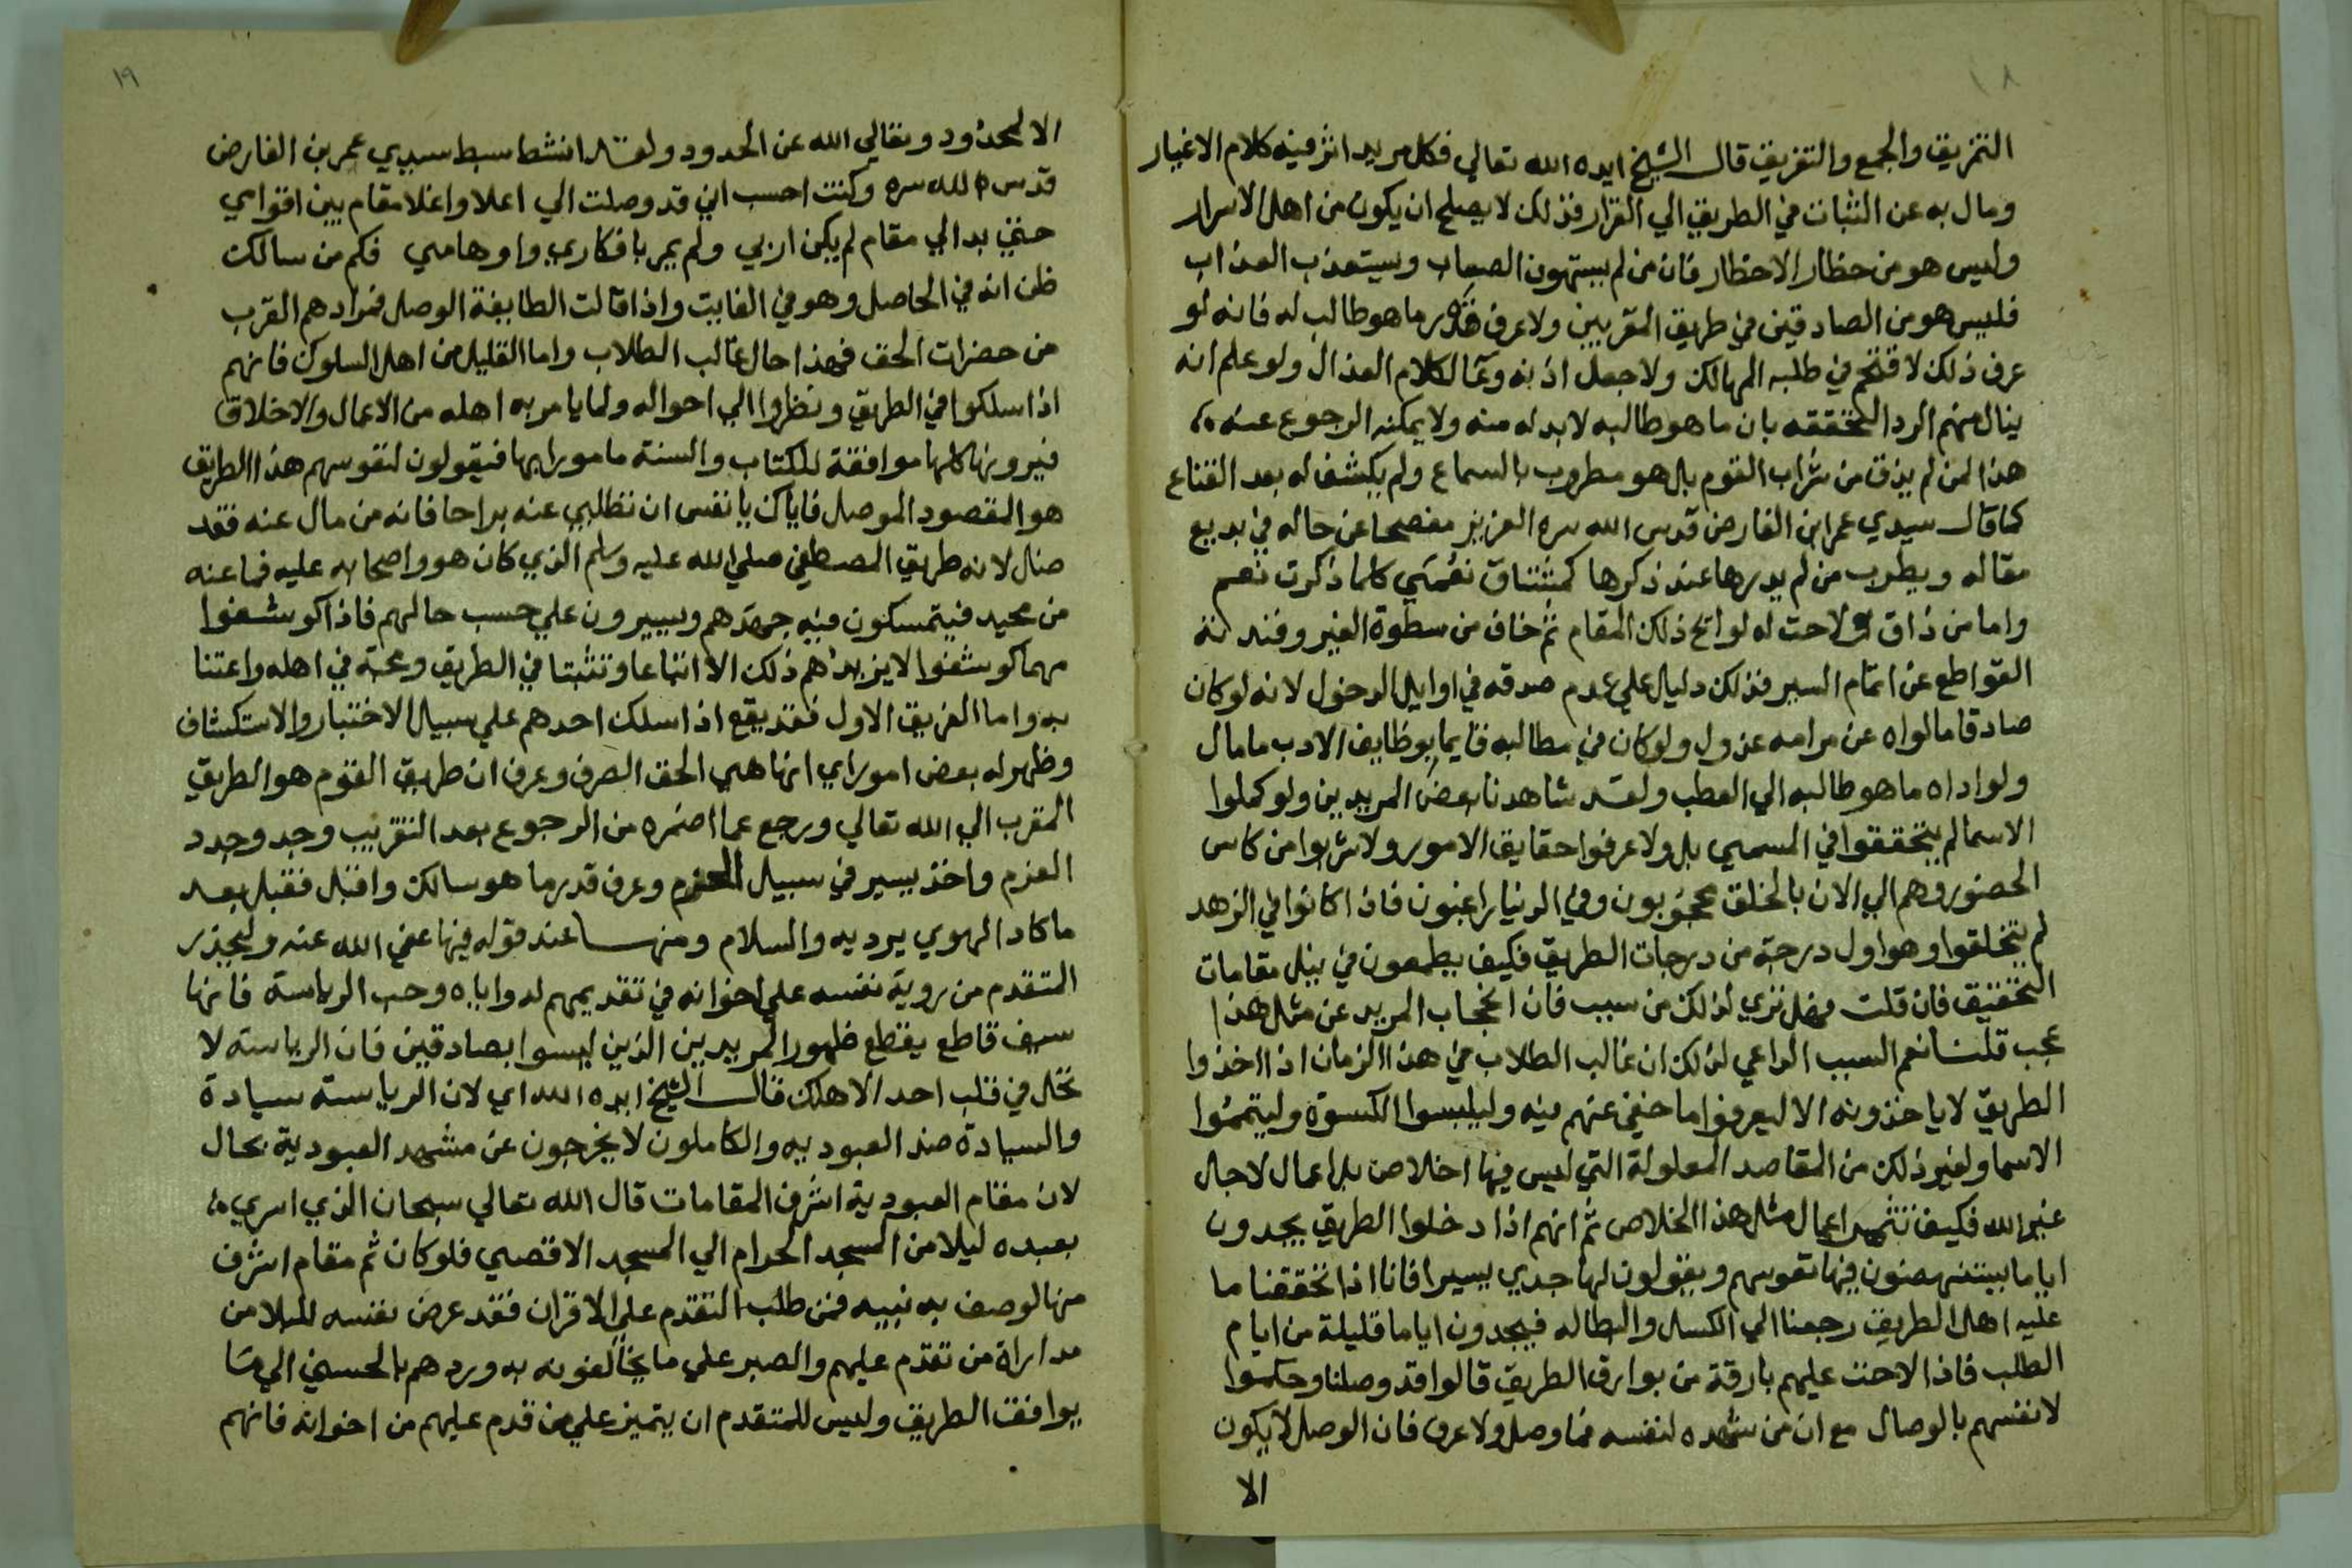 ١٨
التمزيق والجمع والتفريق قال الشيخ ايده الله تعالي فكل مريد اثر فيه كلام الاغيار
ومال به عن الثبات في الطريق الي الفرار فذلك لا يصلح ان يكون من اهل الاسرار
وليس هو من حظار الاحظار فان من لم يستهون الصعاب ويستعذب العذاب
فليس هو من الصادقين في طريق المقربين ولا عرف قدر ما هو طالب له فانه لو
عرف ذلك لاقتحم في طلبه المهالك ولا جعل اذنه وعا لكلام العذال ولو علم انه
ينال منهم الردا لتحققه بان ما هو طالبه لابد له منه ولا يمكنه الرجوع عنه
هذا لمن لم يذق من شراب القوم بل هو مطروب بالسماع ولم يكشف له بعد القناع
كما قال سيدي عمر ابن الفارض قدس الله سره العزيز مفصحا عن حاله في بديع
مقاله ويطرب من لم يدرها عند ذكرها كمشتاق نعمي كلما ذكرت نعم
واما من ذاق ولاحت له لوايح ذلك المقام ثم خاف من سطوة الغير وفتنته
القواطع عن اتمام السير فذلك دليل علي عدم صدقه في اوايل الدخول لانه لو كان
صادقا ما لواه عن مرامه عذول ولو كان في مطالبه قايما بوظايف الادب ما مال
ولو اداه ما هو طالبه الي العطب ولقد شاهدنا بعض المريدين ولو كملوا
الاسما لم يتحققوا في المسمي بل ولا عرفوا حقايق الامور ولا شربوا من كاس
الحضور وهم الي الان بالخلق محجوبون وفي الدنيا راغبون فاذا كانوا في الزهد
لم يتخلقوا وهو اول درجة من درجات الطريق فكيف يطمعون في نيل مقامات
التحقيق فان قلت فهل تري لذلك من سبب فان انحجاب المريد عن مثل هذا
عجب قلت نعم السبب الداعي لذلك ان غالب الطلاب في هذا الزمان اذا اخذوا
الطريق لا ياخذونه الا ليعرفوا ما خفي عنهم فيه وليلبسوا الكسوة وليتمموا
الاسما ولغير ذلك من المقاصد المعلولة التي ليس فيها اخلاص بل اعمال لاجل
غير الله فكيف تثمر اعمال مثل هذا الخلاص ثم انهم اذا دخلوا الطريق يجدون
اياما يستنهضون فيها نفوسهم ويقولون لها جدي يسيرا فانا اذا تحققنا ما
عليه اهل الطريق رجعنا الي الكسل والبطاله فيجدون اياما قليلة من ايام
الطلب فاذا لاحت عليهم بارقة من بوارق الطريق قالوا قد وصلنا وحكموا
لانفسهم بالوصال مع ان من شهده لنفسه فما وصل ولا عرف فان الوصل لا يكون
الا
١٩
الا لمحدود وتعالي الله عن الحدود ولقد انشد سبط سيدي عمر بن الفارض
قدس الله سره وكنت احسب اني قد وصلت الي اعلا واغلا مقام بين اقوامي
حتي بدا لي مقام لم يكن اربي ولم يمر بافكاري واوهامي فكم من سالك
ظن انه في الحاصل وهو في الفايت واذا قالت الطايفة الوصل فمرادهم القرب
من حضرات الحق فهذا حال غالب الطلاب واما القليل من اهل السلوك فانهم
اذا سلكوا في الطريق ونظروا الي احواله ولما يامر به اهله من الاعمال والاخلاق
فيرونها كلها موافقة للكتاب والسنة مامورا بها فيقولون لنفوسهم هذا الطريق
هو المقصود الموصل فاياك يا نفس ان تطلبي عنه براحا فانه من مال عنه فقد
ضال لانه طريق المصطفي صلي الله عليه وسلم الذي كان هو واصحابه عليه فما عنه
من محيد فيتمسكون فيه جهدهم ويسيرون علي حسب حالهم فاذا كوشفوا
مهما كوشفوا لا يزيدهم ذلك الا اتباعا وتثبتا في الطريق ومحبة في اهله واعتنا
به واما الفريق الاول فقد يقع اذا سلك احدهم علي سبيل الاختبار والاستكشاف
وظهر له بعض امور راي انها هي الحق الصرف وعرف ان طريق القوم هو الطريق
المقرب الي الله تعالي ورجع عما اضمره من الرجوع بعد التقريب وجد وجدد
العزم واخذ يسير في سبيل الحزم وعرف قدر ما هو سالك واقبل فقبل بعد
ما كاد الهوي يرديه والسلام ومنها عند قوله فيها عفي الله عنه وليحذر
المتقدم من روية نفسه علي اخوانه في تقديمهم له واياه وحب الرياسة فانها
سيف قاطع يقطع ظهور المريدين الذين ليسوا بصادقين فان الرياسة لا
تحل في قلب احد الا هلك قال الشيخ ايده الله اي لان الرياسته سيادة
والسيادة ضد العبوديه والكاملون لا يخرجون عن مشهد العبودية بحال
لان مقام العبودية اشرف المقامات قال الله تعالي سبحان الذي اسري
بعبده ليلا من المسجد الحرام الي المسجد الاقصي فلو كان ثم مقام اشرف
منها لوصف به نبيه فمن طلب التقدم علي الاقران فقد عرض نفسه للبلا من
مداراة من تقدم عليهم والصبر علي ما يخالفونه به وردهم بالحسني الي ما
يوافق الطريق وليس للمتقدم ان يتميز علي من قدم عليهم من اخوانه فانهم